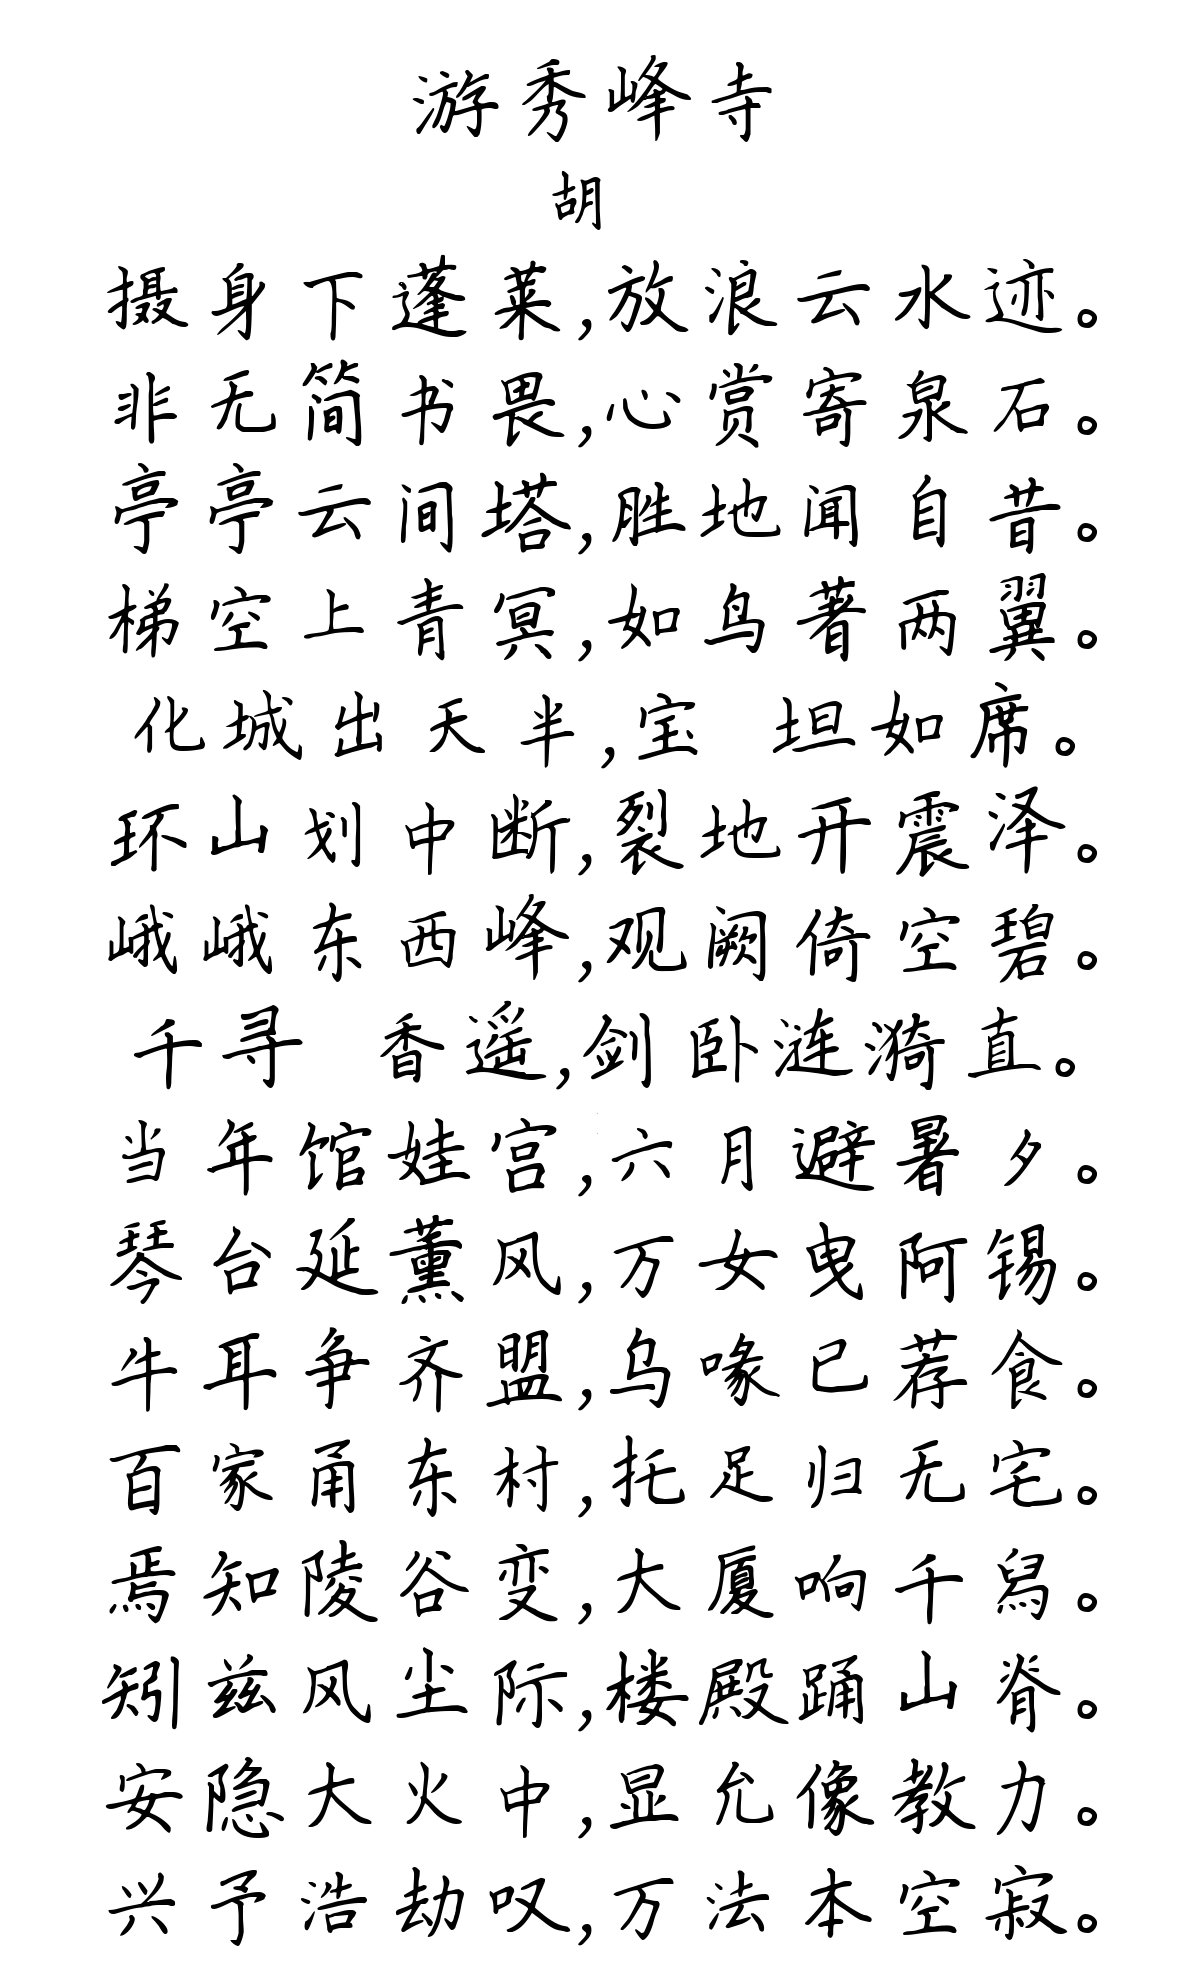 游秀峰寺
胡
摄身下蓬莱,放浪云水迹。
非无简书畏,心赏寄泉石。
亭亭云间塔,胜地闻自昔。
梯空上青冥,如鸟著两翼。
化城出天半,宝 坦如席。
环山划中断,裂地开震泽。
峨峨东西峰,观阙倚空碧。
千寻 香遥,剑卧涟漪直。
当年馆娃宫,六月避暑夕。
琴台延薰风,万女曳阿锡。
牛耳争齐盟,乌喙已荐食。
百家甬东村,托足归无宅。
焉知陵谷变,大厦响千舄。
矧兹风尘际,楼殿踊山脊。
安隐大火中,显允像教力。
兴予浩劫叹,万法本空寂。